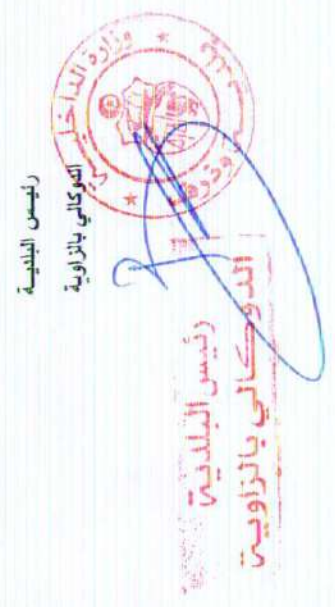 رئيس البلدية
الدوكالي بالزاوية
وزارة الداخلية
وذرف
رئيس البلدية
الدوكالي بالزاويـة